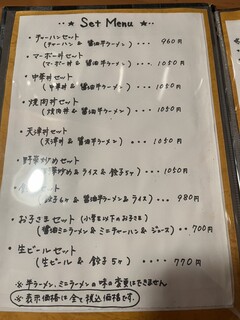 ★ Set Menu ★
・チャーハンセット
(チャーハン & 醤油半ラーメン) ・・・ 960円
・マーボー丼セット
(マーボー丼 & 醤油半ラーメン) ・・・ 1050円
・中華丼セット
(中華丼 & 醤油半ラーメン) ・・・ 1050円
・焼肉丼セット
(焼肉丼 & 醤油半ラーメン) ・・・ 1050円
・天津丼セット
(天津丼 & 醤油半ラーメン) ・・・ 1050円
・野菜炒めセット
(野菜炒め & ライス & 餃子3ヶ) ・・・ 1050円
セット
(餃子6ヶ & 醤油半ラーメン & ライス) ・・・ 980円
・お子さまセット (小学生以下のお子さま)
(醤油ミニラーメン & ミニチャーハン & ジュース) ・・ 700円
・生ビールセット
(生ビール & 餃子5ヶ) ・・・・ 770円
※半ラーメン、ミニラーメンの味の変更はできません
※表示価格は全て税込価格です。